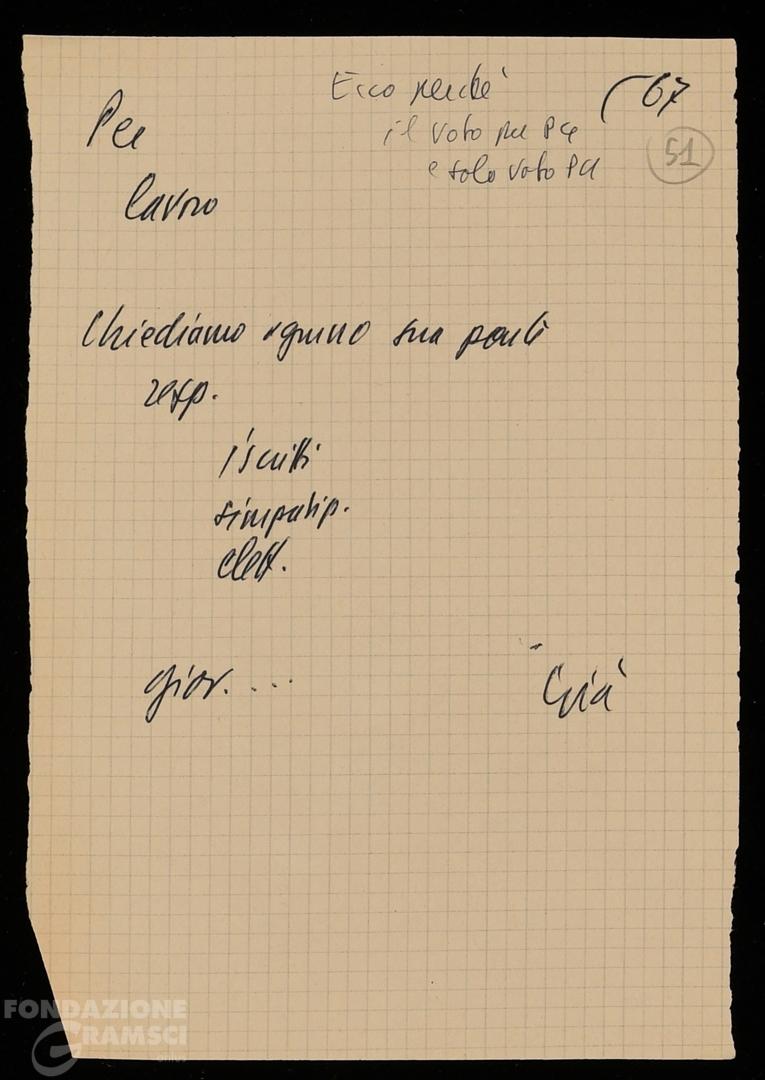 Ecco perché
il voto per PCI
è solo voto PCI
(67
51
Per
lavoro
Chiediamo ognuno sua parte
resp.
iscritti
simpatiz.
elett.
giov. ...
Già
FONDAZIONE
GRAMSCI
onlus